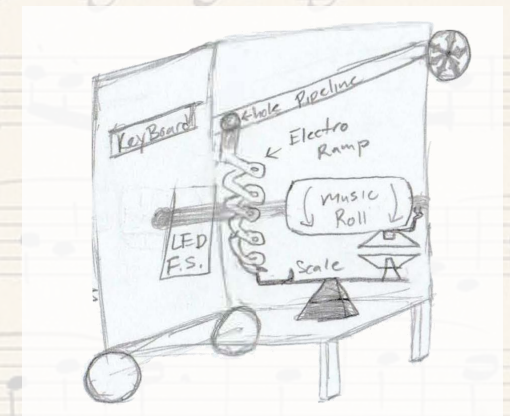 KeyBoard
hole Pipeline
Electro
Ramp
Music
Roll
LED
F.S.
Scale